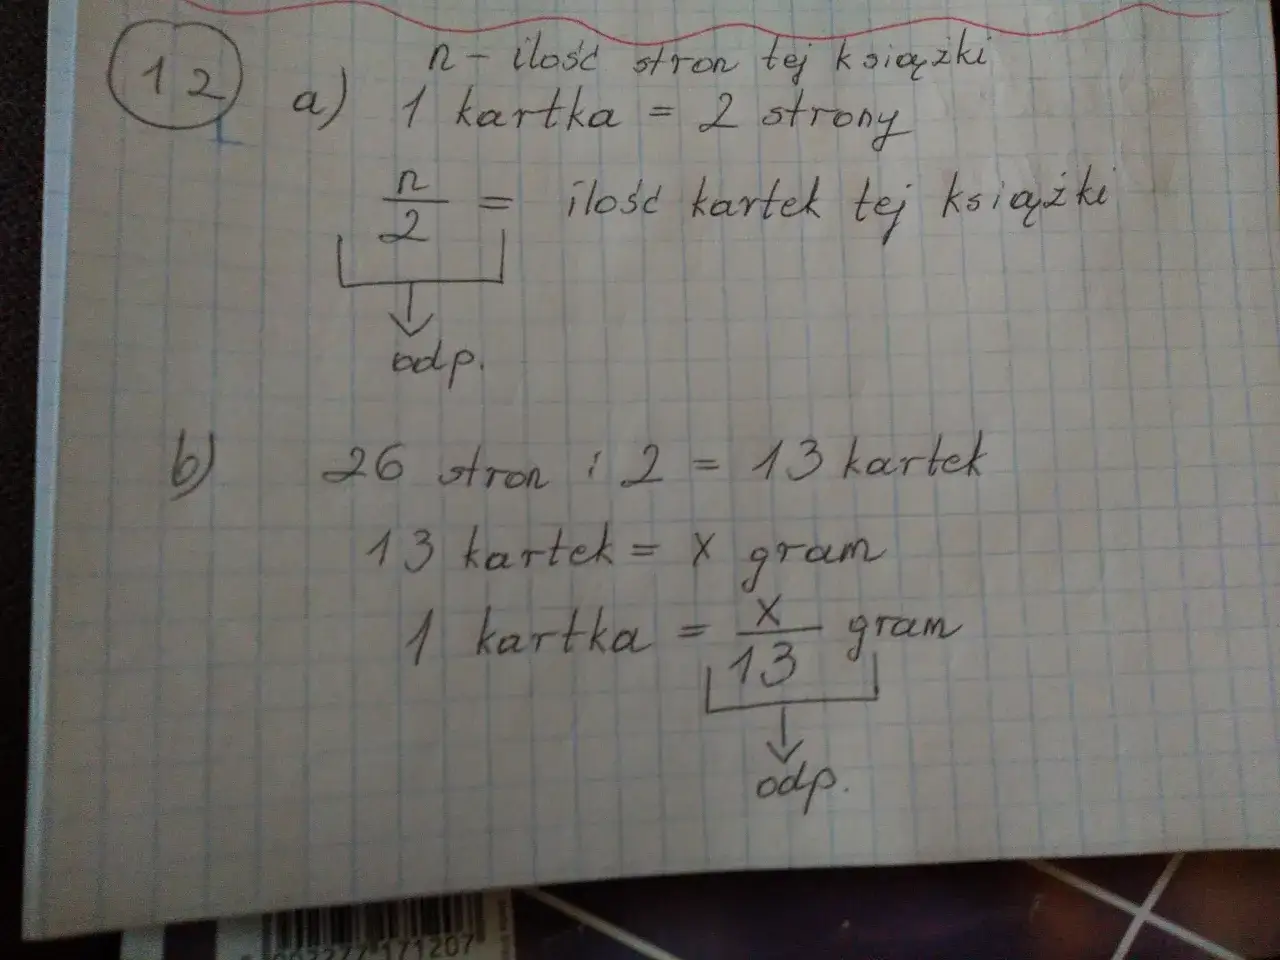 12
a)
n - ilość stron tej książki
1 kartka = 2 strony
n/2 = ilość kartek tej książki
odp.
b) 26 stron : 2 = 13 kartek
13 kartek = x gram
1 kartka = x/13 gram
odp.
171207